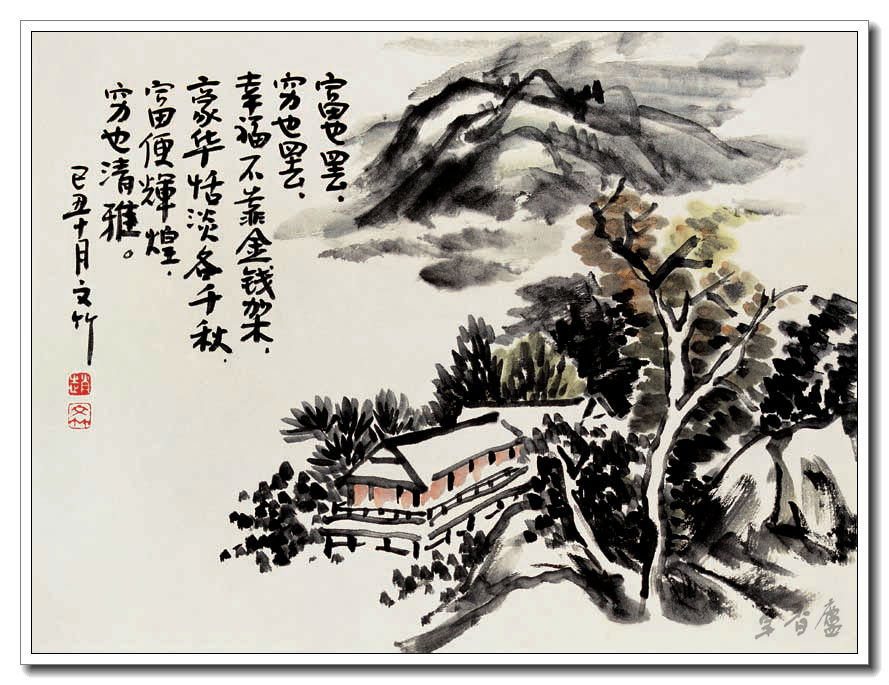 富也罢、
穷也罢、
幸福不靠金钱架、
豪华恬淡各千秋、
富便輝煌、
穷也清雅。
己丑十月文竹
趙
文竹